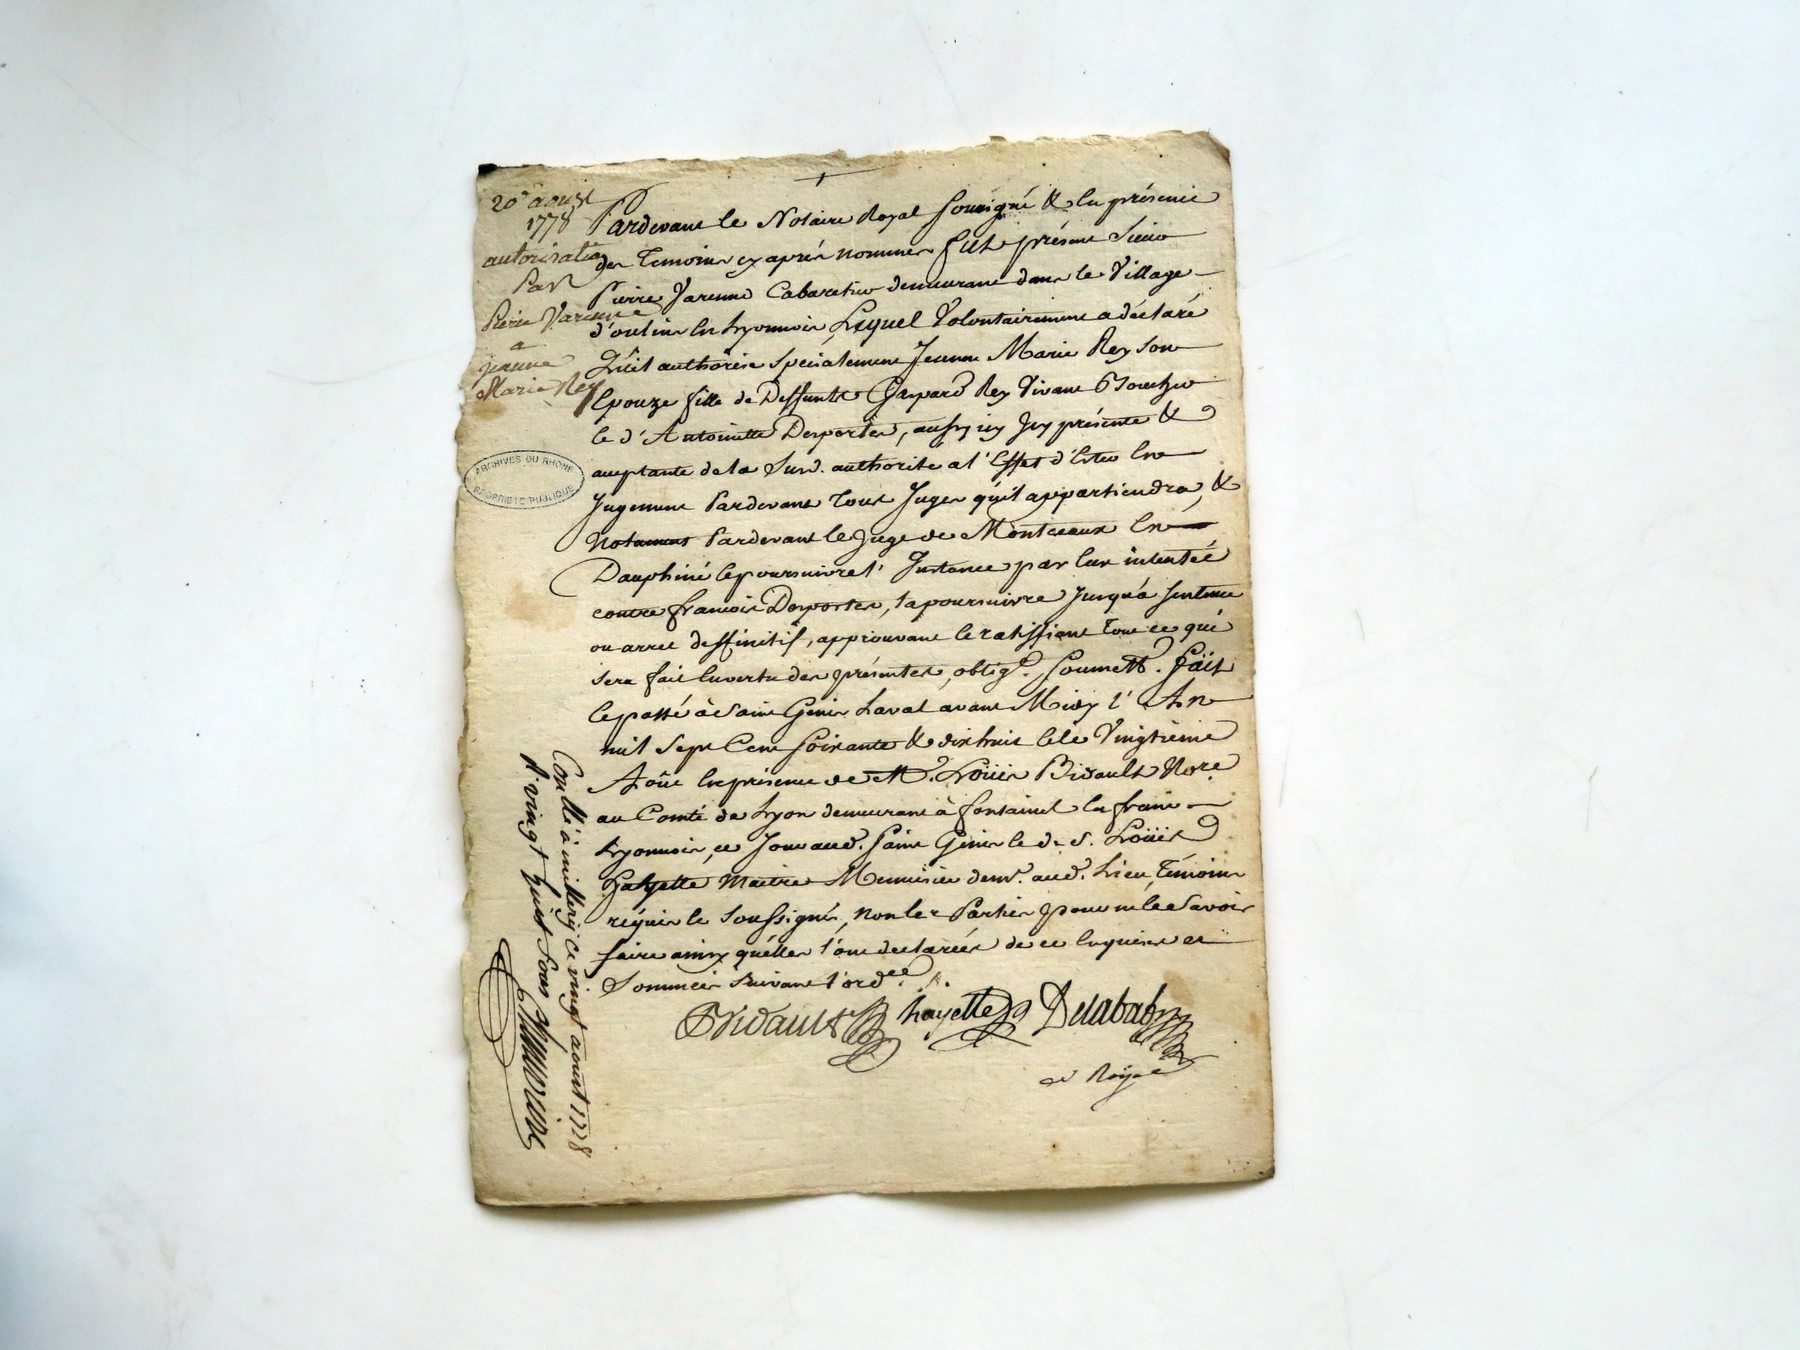 20e aoust
1778
autorisation
Par
Pierre Varenne
a
jeanne
Marie Rey
ARCHIVES DU RHONE
PROPRIETE PUBLIQUE
Pardevant le Notaire Royal soussigné & en présence
des Temoins cy après nommés fut présent Sieur
Pierre Varenne Cabaretier demeurant dans le Village
d'oulins en Lyonnois, Lequel Volontairement a déclaré
Qu'il authorise specialement Jeanne Marie Rey son
Epouze fille de Deffunts Gaspard Rey Vivant
le d'Antoinette Desportes, aussy icy présente &
aceptante de la Susd. authorité a l'Effet d'Ester En
Jugement Pardevant Tous Juges qu'il appartiendra, &
Notament Pardevant le Juge de Montceaux En
Dauphiné le poursuivre l'Instance par Eux intentée
contre francois Desportes, la poursuivre Jusqu'à Sentence
ou arret deffinitif, approuvant le ratiffiant Tout ce qui
sera fait En vertu des présentes, oblig.on Soumett. Fait
le passé à Saint Genis Laval avant Midy l'An
mil Sept Cent soixante & dix huit le le Vingtième
Août En présence de M.e Loüis Bidault Nore.
au Comté de Lyon demeurant à fontaines En franc
Lyonnois, ce Jour aud. Saint Genis le de S. Loüis
Layette Maitre Menuisier demt. aud. Lieu, Témoins
requis le soussignés, non les Parties pour ne le Savoir
faire ainsy qu'elles l'ont declarées de ce Enquises et
Sommées suivant l'ordce.
Bidault Layette Delabal
Nore Royal
Conllé à millery ce vingt aoust 1778
R. vingt huit sous